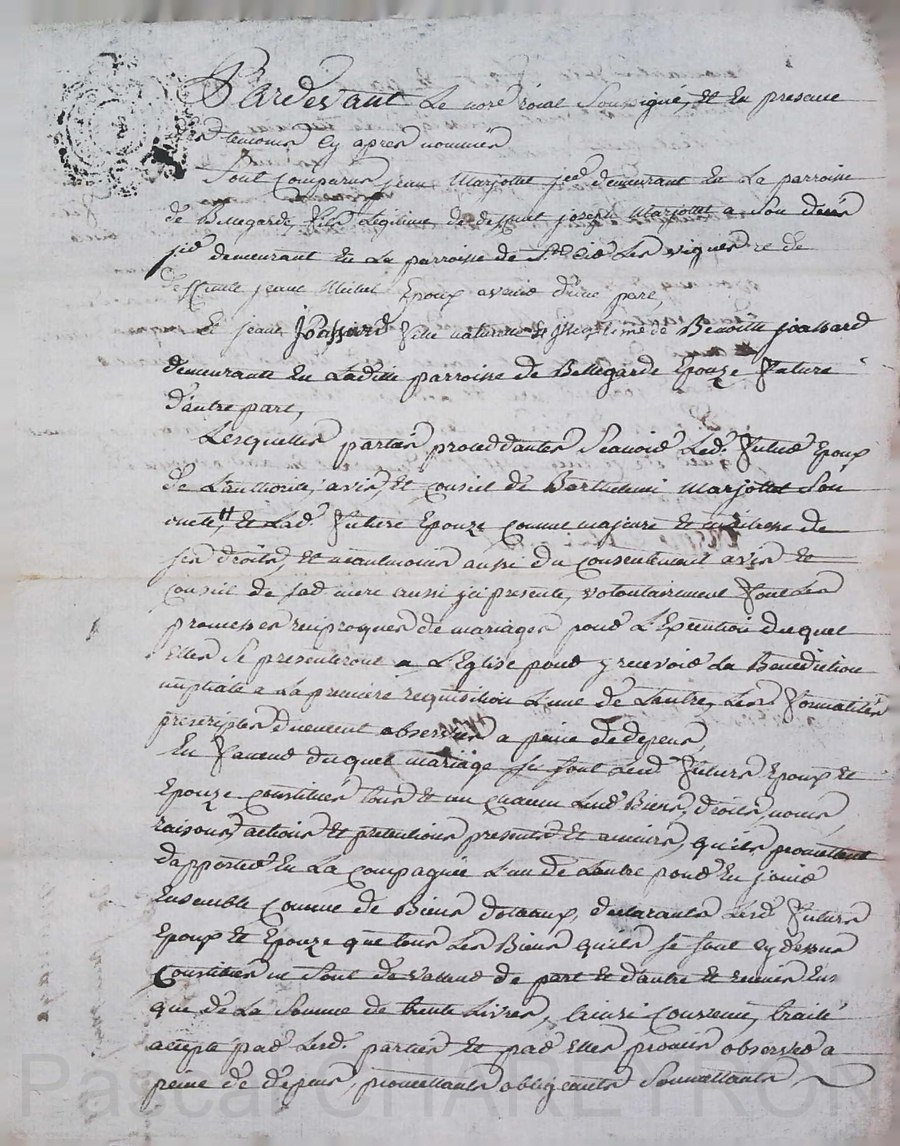 Pardevant Le nore roial Soussigné, et En presence
des temoins Cy apres nommés
Sont Comparus jean Marjollet demeurant En La parroisse
de Bellegarde, fils Legitime de deffunt joseph Marjollet a Son deces
demeurant En La parroisse de St Les vignes et de
deffunte jeane Epoux avenir d'une part,
Et jeane joassard fille naturelle et de Benoitte joassard
demeurante En Laditte parroisse de Bellegarde Epouze future
d'autre part,
Lesquelles parties proceddantes Scavoir Led. futur Epoux
de L'authorité, avis, et Conseil de Barthelemi Marjollet Son
oncle, et Lad. future Epouze Comme majeure et maitresse de
ses droits, et neantmoins aussi du Consentement avis et
Conseil de sad. mere aussi ici presente, volontairement font Les
promesses reciproques de mariages pour L'Execution duquel
Elles Se presenteront a L'Eglise pour y recevoir La Benediction
nuptiale a La premiere requisition L'une de L'autre, Les formalités
prescriptes duement observées a peine de depens,
En faveur duquel mariage se sont Lesd. futurs Epoux et
Epouze Constitués tous et un chacun Leurs Biens, droits, noms,
raisons, actions et pretentions presents et avenirs, qu'ils promettent
d'apporter En La Compagnie L'un de L'autre pour En jouir
Ensemble Comme de Biens dotaux, declarants Lesd. futurs
Epoux et Epouze que tous Les Biens qu'ils se sont cy dessus
Constitués ne Sont de valleur de part et d'autre et reunis En
que de La Somme de trente Livres, Ainsi Convenu, traité
accepté par Lesd. parties et par Elles promis observer a
peine de depens, promettants obligeants Soumettants
Pascal CHAREYRON